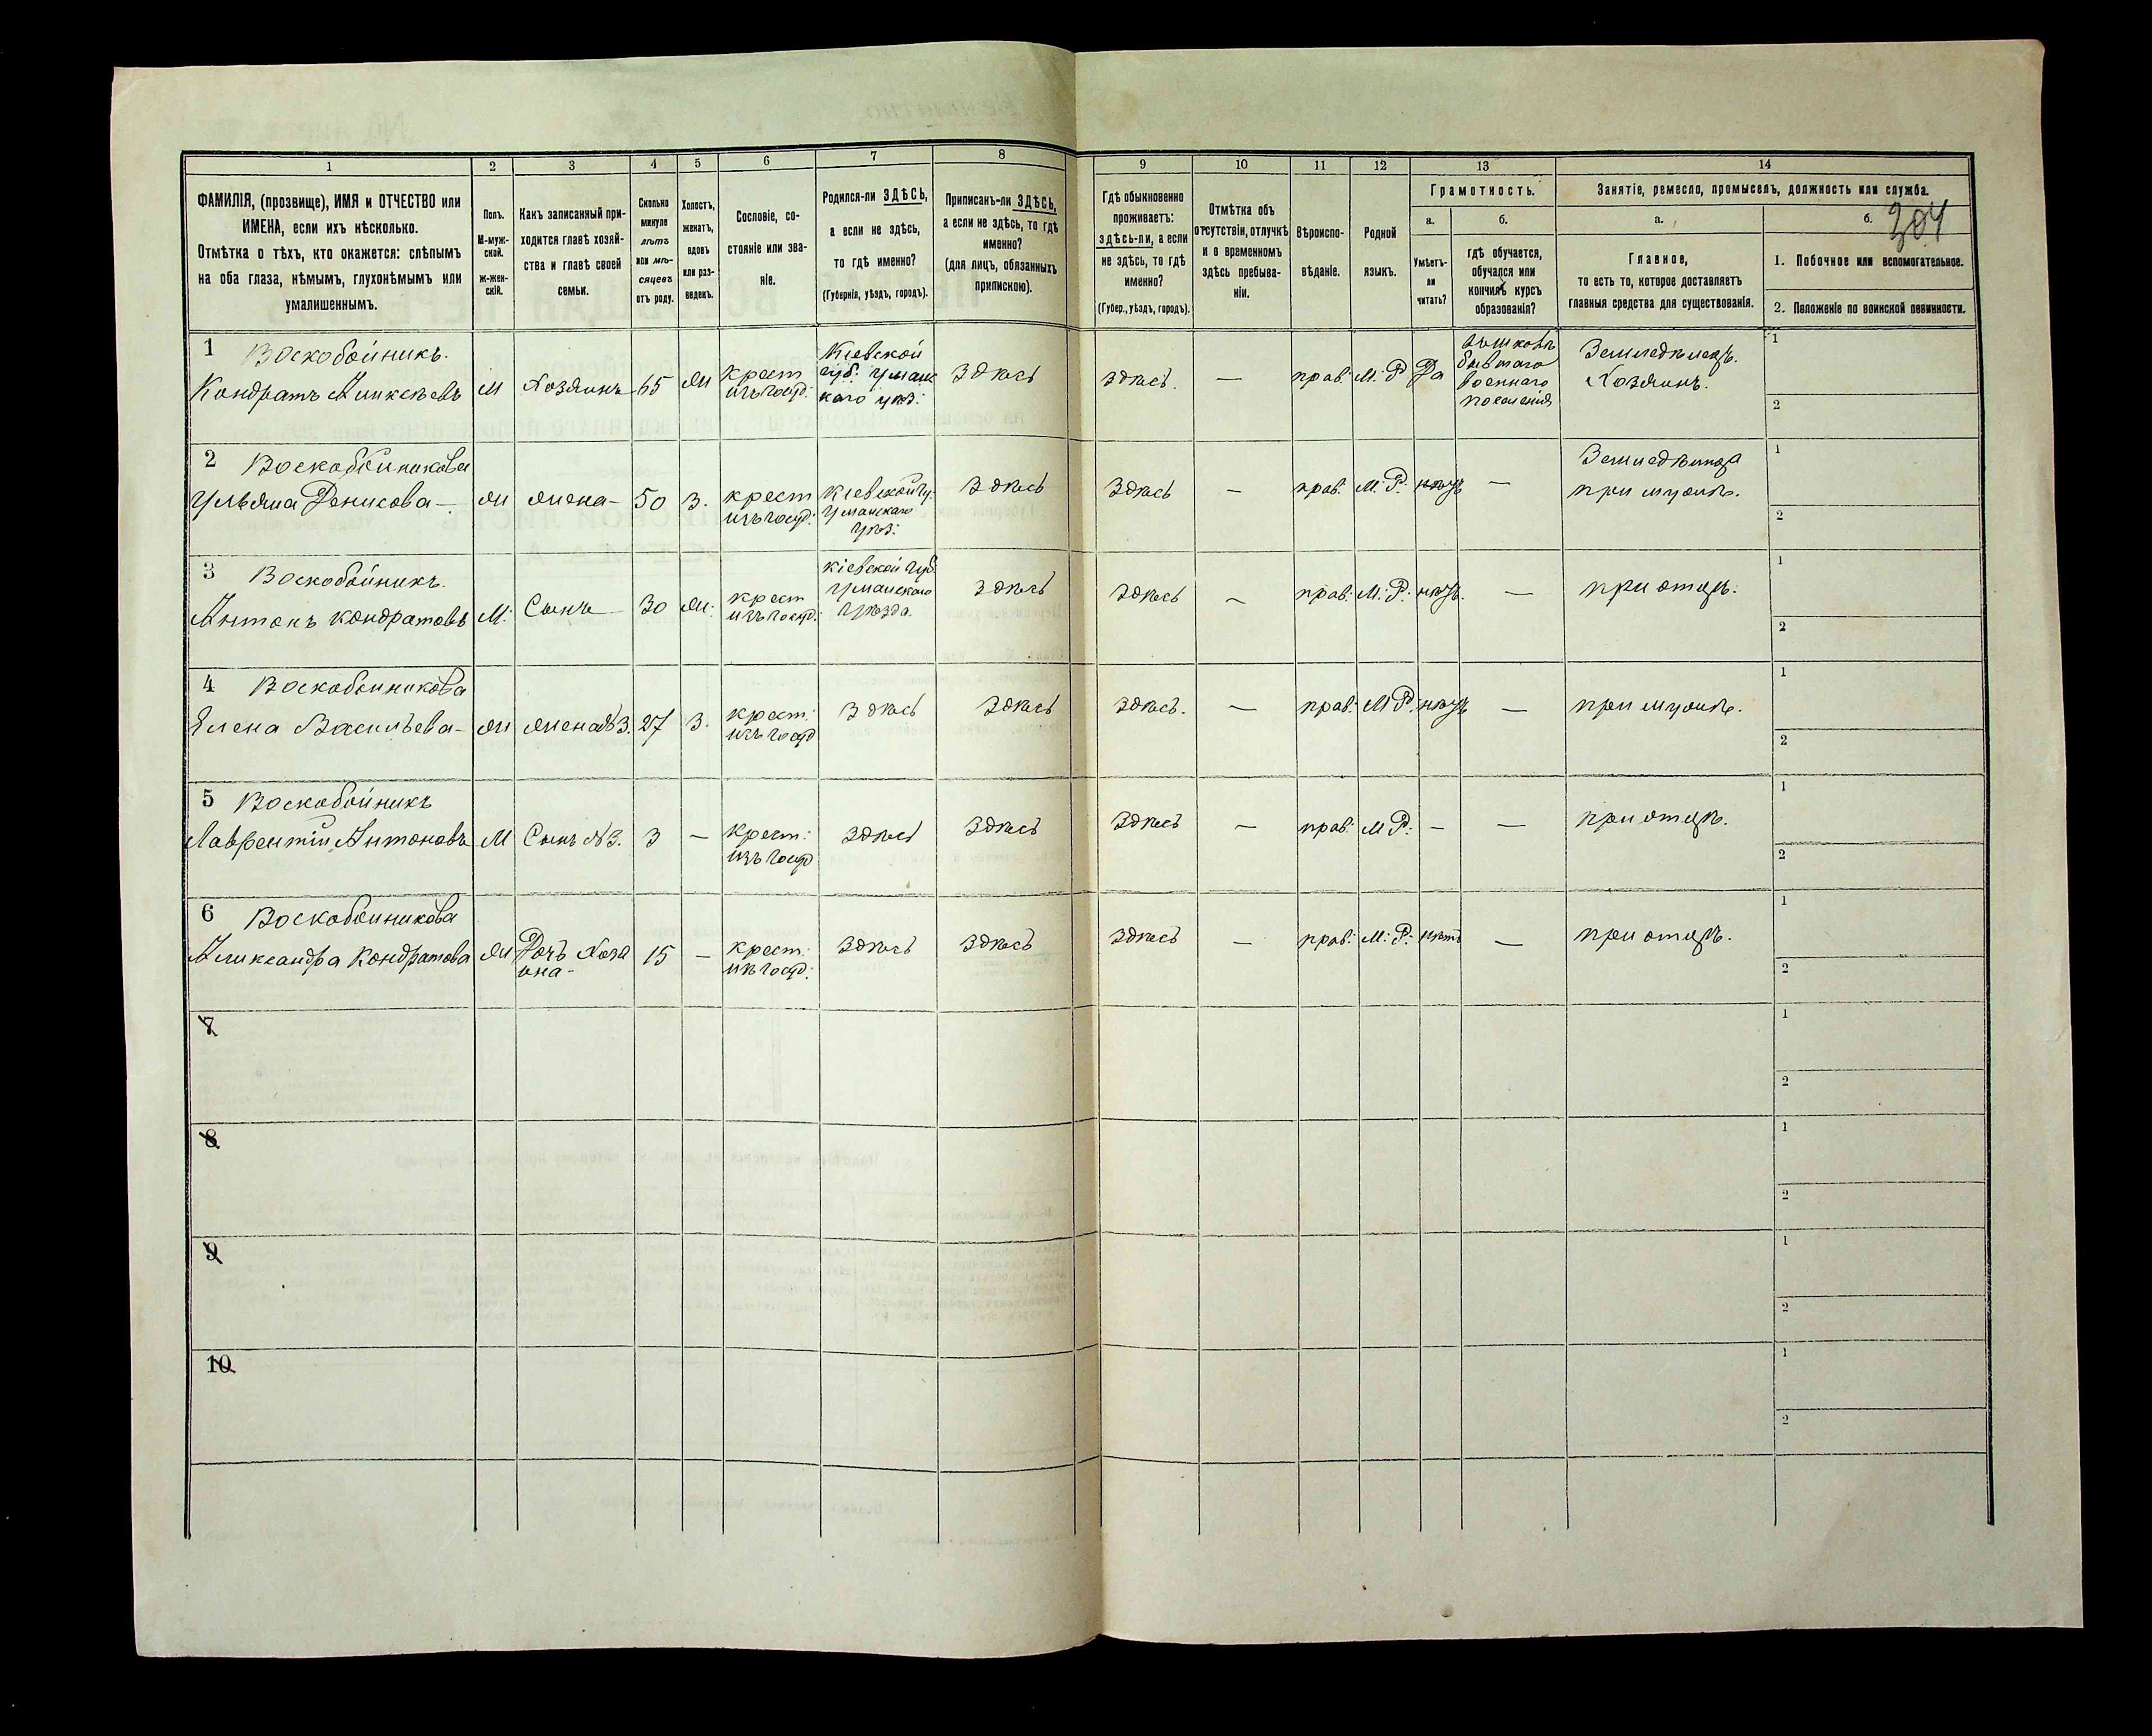 1
2
3
4
5
6
7
8
9
10
11
12
13
14
ФАМИЛІЯ, (прозвище), ИМЯ и ОТЧЕСТВО или
ИМЕНА, если ихъ нѣсколько.
Отмѣтка о тѣхъ, кто окажется: слѣпымъ
на оба глаза, нѣмымъ, глухонѣмымъ или
умалишеннымъ.
Полъ.
М-муж-
ской.
ж-жен-
скій.
Какъ записанный при-
ходится главѣ хозяй-
ства и главѣ своей
семьи.
Сколько
минуло
лѣтъ
или мѣ-
сяцевъ
отъ роду.
Холостъ,
женатъ,
вдовъ
или раз-
веденъ.
Сословіе, со-
стояніе или зва-
ніе.
Родился-ли ЗДѢСЬ,
а если не здѣсь,
то гдѣ именно?
(Губернія, уѣздъ, городъ).
Приписанъ-ли ЗДѢСЬ,
а если не здѣсь, то гдѣ
именно?
(для лицъ, обязанныхъ
припискою).
Гдѣ обыкновенно
проживаетъ:
здѣсь-ли, а если
не здѣсь, то гдѣ
именно?
(Губер., уѣздъ, городъ).
Отмѣтка объ
отсутствіи, отлучкѣ
и о временномъ
здѣсь пребыва-
ніи.
Вѣроиспо-
вѣданіе.
Родной
языкъ.
Грамотность.
а.
б.
Умѣетъ-
ли
читать?
гдѣ обучается,
обучался или
кончилъ курсъ
образованія?
Занятіе, ремесло, промыселъ, должность или служба.
а.
б.
304
Главное,
то есть то, которое доставляетъ
главныя средства для существованія.
1. Побочное или вспомогательное.
2. Положеніе по воинской повинности.
1 Воскобойникъ.
Кондратъ Аликсѣевъ
М
Хозяинъ
65
Ж
крест
изъ госуд:
Кіевской
губ. Уманс
каго уѣз:
Здѣсь
здѣсь.
—
прав:
М. Р
Да
школъ
бывшаго
военнаго
поселенія
Земледѣлецъ.
Хозяинъ.
1
2
2 Воскобойникова
Ульяна Денисова —
Ж
Жена —
50
З.
крест
изъ госуд:
Кіевской гу.
Уманскаго
Уѣз:
Здѣсь
Здѣсь
—
прав:
М. Р.
нѣтъ
—
при мужѣ.
1
2
3 Воскобойникъ.
Антонъ Кондратовъ
М:
Сынъ
30
Ж:
крест
изъ госуд:
Кіевской губ.
Уманскаго
Уѣзда.
Здѣсь
Здѣсь
—
прав:
М: Р:
нѣтъ.
—
при отцѣ.
1
2
4 Воскобойникова
Елена Васильева —
Ж
Жена №3.
27
З.
крест:
изъ госуд
Здѣсь
Здѣсь
Здѣсь.
—
прав:
М Р.
нѣтъ
—
при мужѣ.
1
2
5 Воскобойникъ
Лаврентій Антоновъ
М
Сынъ №3.
3
—
крест:
изъ госуд
Здѣсь
Здѣсь
Здѣсь
—
прав:
М Р:
—
—
при отцѣ.
1
2
6 Воскобойникова
Аликсандра Кондратова
Ж
Дочь Хозя
ина —
15
—
крест:
изъ госуд:
Здѣсь
Здѣсь
Здѣсь
—
прав:
М: Р:
нѣтъ
—
при отцѣ.
1
2
7
1
2
8
1
2
9
1
2
10
1
2